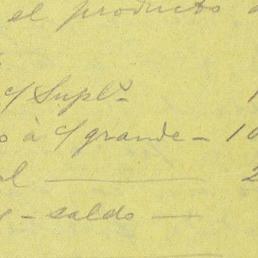 el producto
c/ Supl.º 1
o à c/ grande – 10
al — 2
y – saldo —